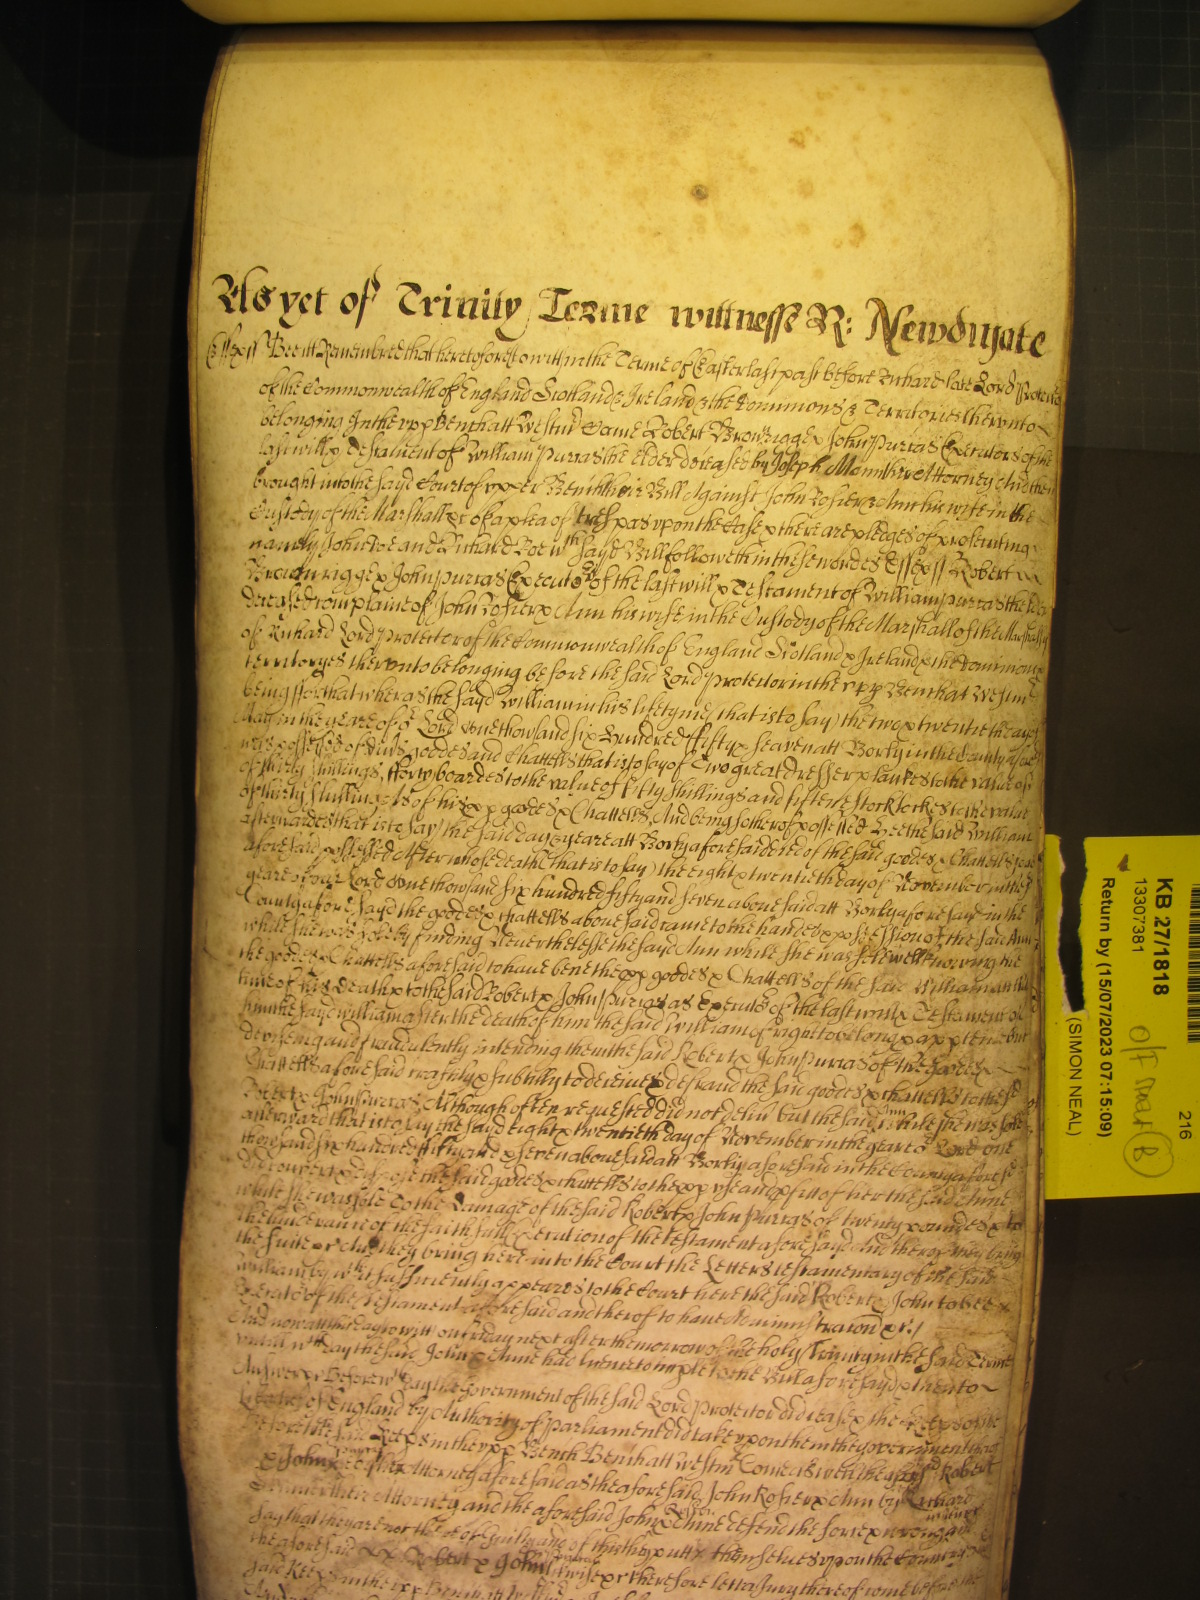 As yet of Trinity Terme wittnesse R: Newdigate
Essex ss Bee itt Remembred that heretofore to witt in the Terme of Easter last past before Richard late Lord Protector
of the Commonwealth of England Scotland & Ireland & the Dominions & Territories therunto
belonging In the upp Bench att Westmr Came Robert Browrigge & John Purras Executors of the
last will & testament of William Purras the elder deceased by Joseph Man their Attorney And then
brought into the sayd Court of upper Bench their Bill Against John Rosier & Ann his wife in the
Custody of the Marshall &c of a plea of trespas upon the Case & there are pledges of prosecuting
namely John Doe and Richard Roe wch sayd Bill followeth in these wordes Essex ss Robert
Brownrigge & John Purras Executors of the last will & Testament of William Purras the elder
deceased complaine of John Rosier & Ann his wife in the Custody of the Marshall of the Marshalsy
of Richard Lord Protector of the Commonwealth of England Scotland & Ireland & the Dominions &
territoryes therunto belonging before the said Lord Protector in the upp Bench at Westmr
being ffor that wheras the sayd William in his lifetyme (that is to say) the two & twentieth day of
May in the yeare of or Lord one thowsand six hundred ffifty & seaven att Borly in the County aforesd
was possessed of divs goodes and Chattells that is to say of Two great dresser plankes to the value of
of thirty shillings, fforty boardes to the value of fifty shillings and fifteene stock lockes to the value
of thirty shillings As of his pp goodes & Chattells, And being so therof possessed hee the said William
afterwardes that is to say the said day & yeare att Borly aforesaid died of the said goodes & Chattells soe as
aforesaid possessed After whose death (that is to say) the eight & twentieth day of November in the
yeare of our Lord one thowsand six hundred fifty and seven abovesaid att Borly aforesayd in the
County aforesayd the goodes & chattells abovesaid came to the handes & possession of the said Ann
while she was sole by finding Neverthelesse the sayd Ann while she was sole well knowing the
the goodes & Chattells aforesaid to have bene the pp goodes & Chattells of the said William att the
time of his death & to the said Robert & John Purras as Execurs of the last will & Testament of
him the sayd William after the death of him the said William of right to belong & apptene but
devising and fraudulently intending them the said Robert & John Purras of the goodes &
Chattells abovesaid craftily & subtilly to deceive & defraud the said goodes & chattells to the sd
Robert & John Purras Although often requested did not deliv but the said Ann while she was sole
afterward that is to say the sayd eight & twentieth day of November in the yeare of or Lord one
thowsand six hundred ffifty and seven abovesaid att Borly aforesaid in the County aforesd
did convert & dispose the said goodes & chattells to the pp use and pfitt of her the said Anne
while she was sole To the damage of the said Robert & John Purras of twenty poundes & to
the hinderance of the faithfull Execution of the testament aforesayd And therof they bring
the suite &c And they bring here into the Court the Letters testamentary of the said
William by wch itt sufficiently appeares to the Court here the said Robert & John to bee
Executors of the Testament aforesaid and therof to have Administracion &c./
And now att this day to witt on friday next after the morrow of the holy Trinity in the said Terme
untill wch day the said John & Anne had licence to imple to the Bill aforesayd & then to
Answer &c Before wch day the Government of the said Lord Protector did cease & the Keeps of the
Liberty of England by Authority of Parliament did take upon them the government therof
Before the said Keeps in the upp Bench Bench att Westmr Come as well the aforesd Robert
& John Purras by their Attorney aforesaid as the aforesaid John Rosier & Ann by Richard
their Attorney and the aforesaid John Rosier & Anne defend the force & wrong att
say that they are not therof Guilty and of this they putt themselves upon the Country
the aforesaid Robert & John Purras likewise &c therefore lett a Jury therof come before the
said Keeps in the upp Bench att
KB 27/1818
13307381
Return by (15/07/2023 07:15:09)
(SIMON NEAL)
216
O/F Map (B)